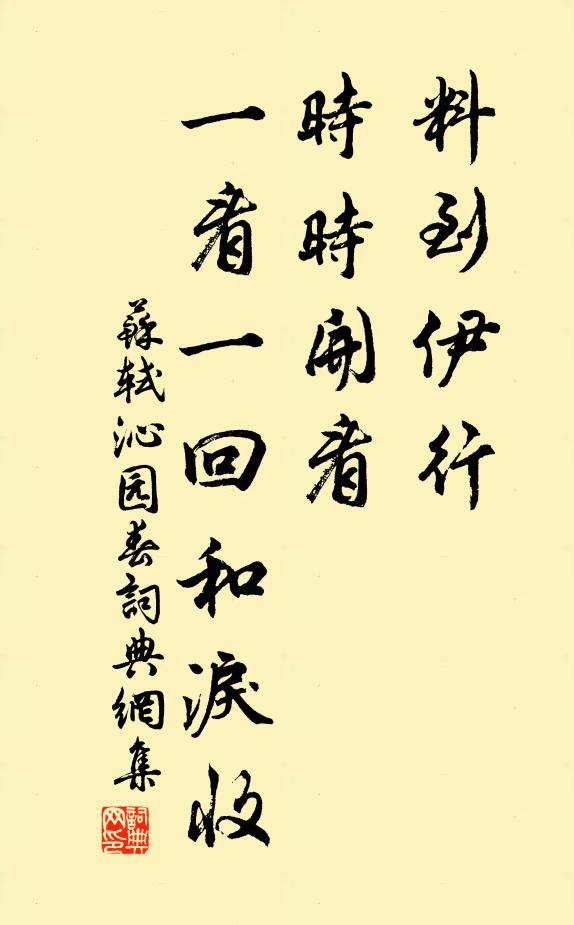 料到伊行
時時開看
一看一回和淚收
蘇軾沁园春詞典網集
詞典网印